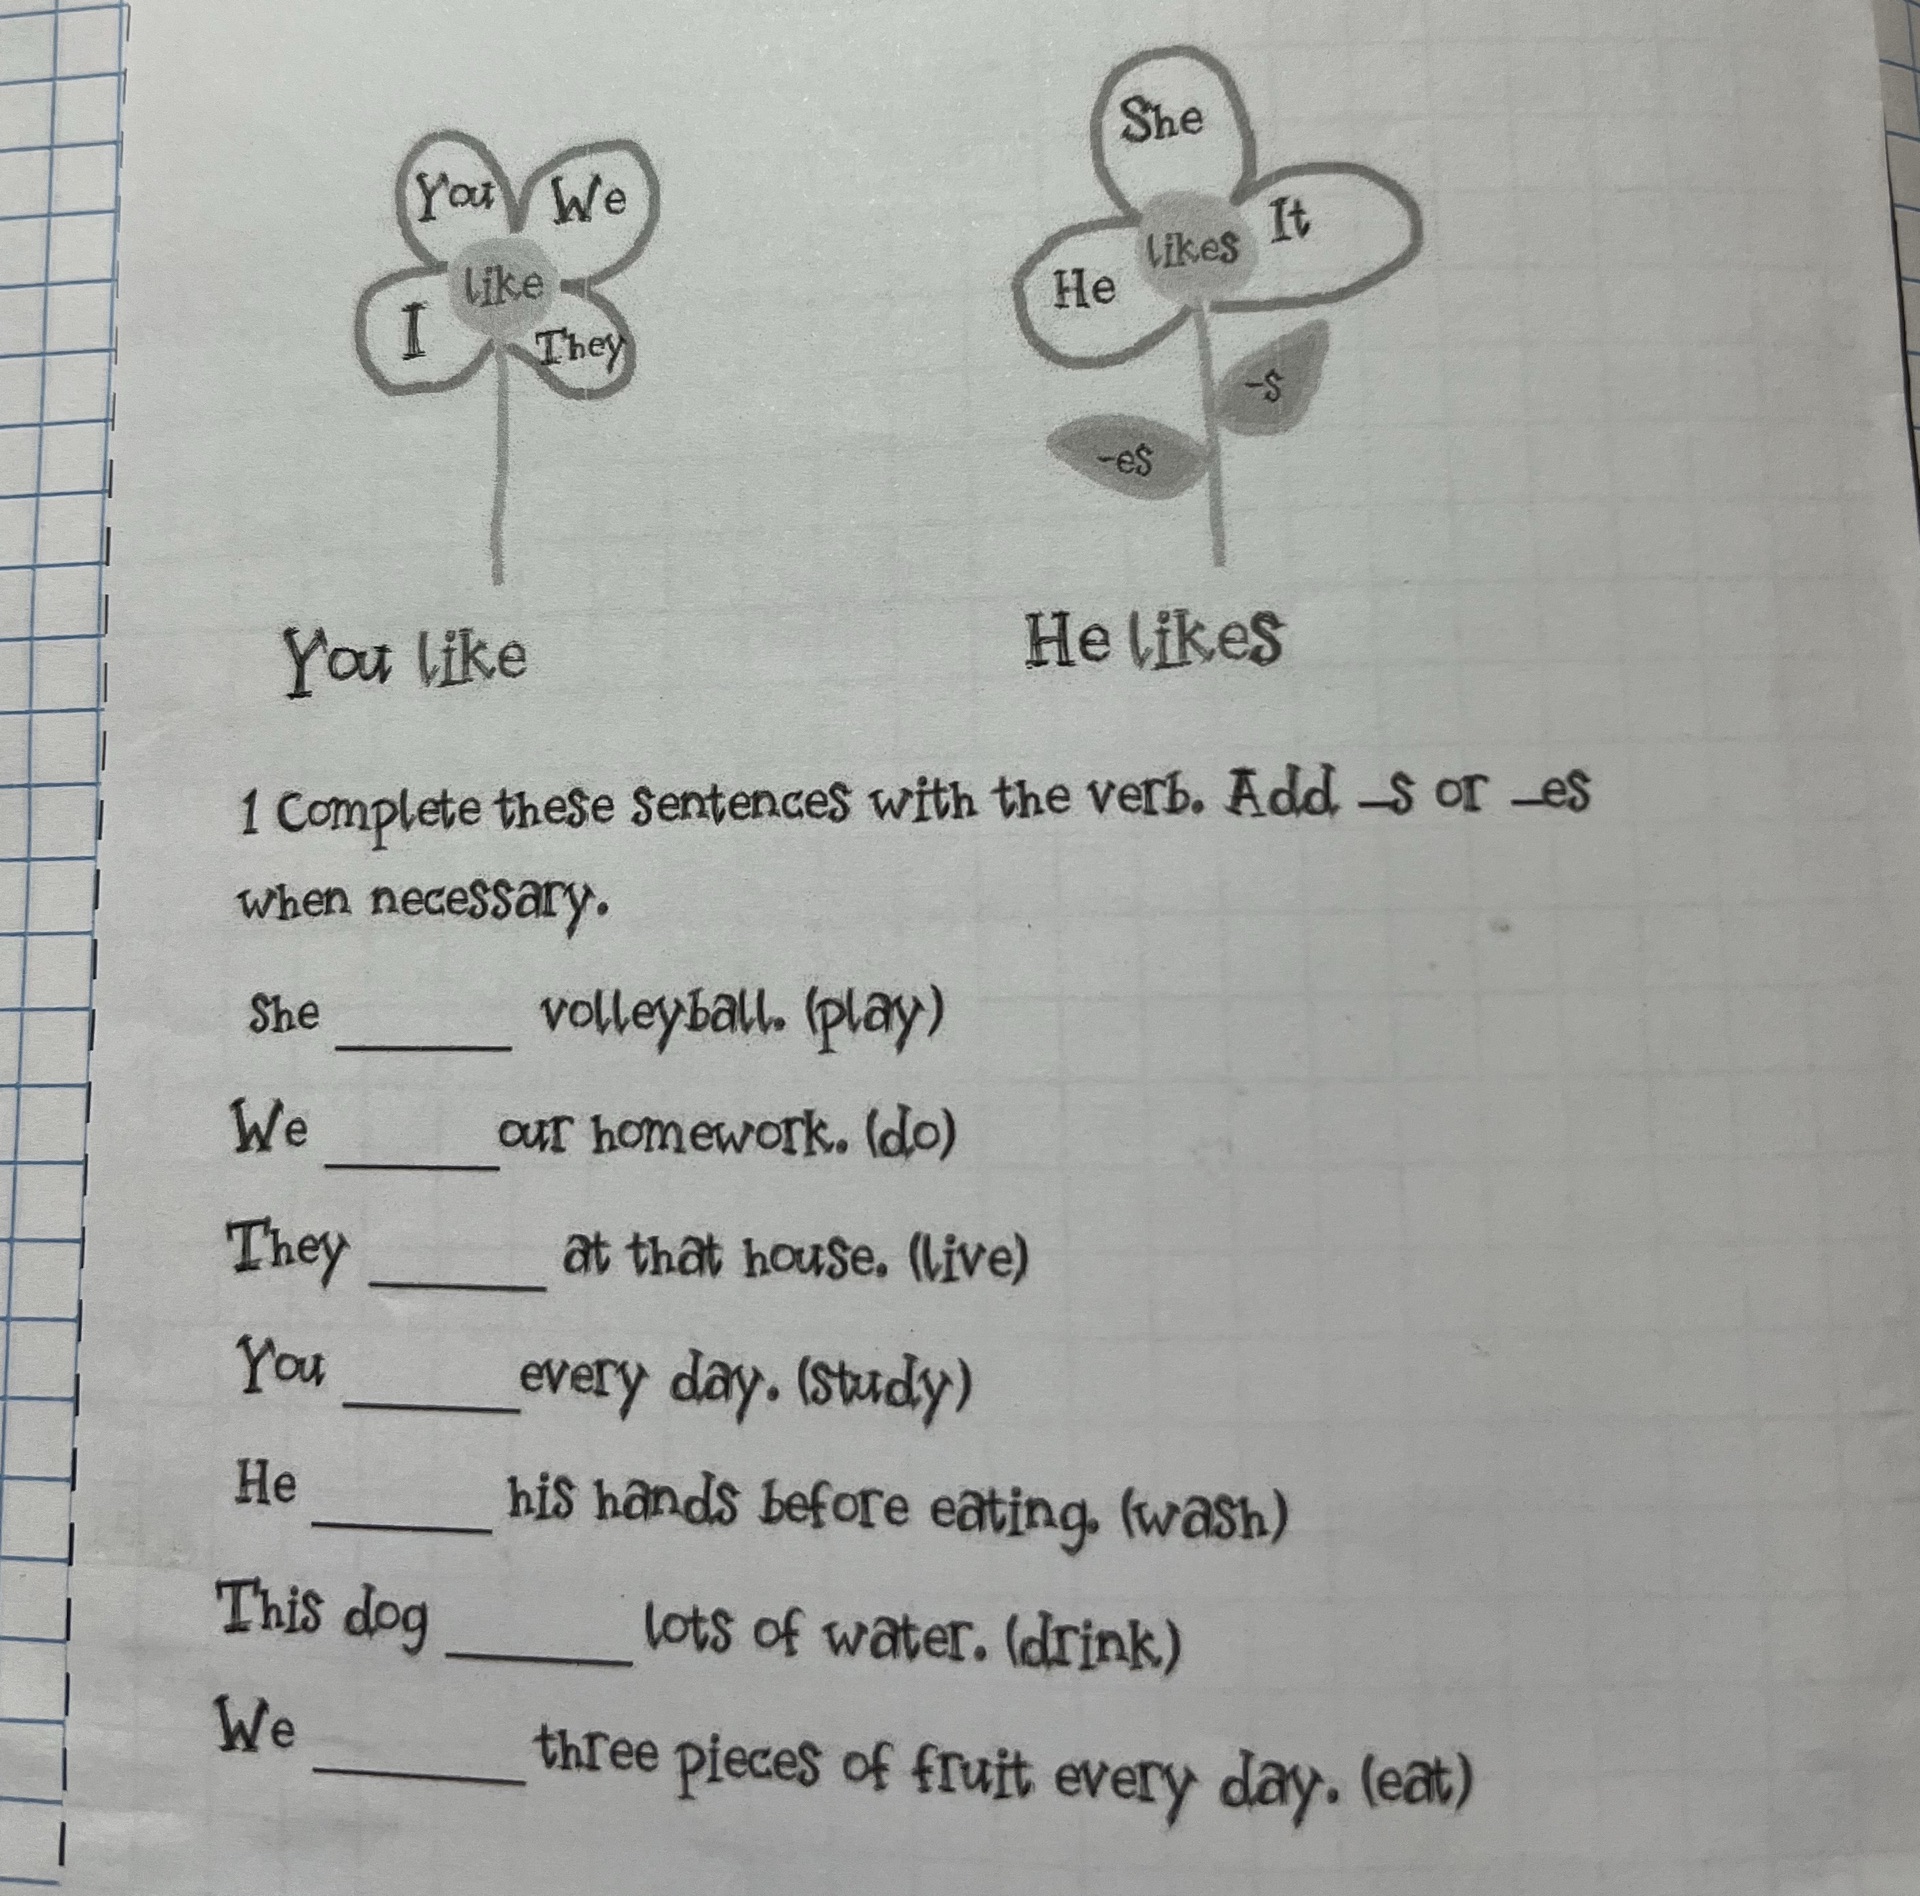 She
You We
It
likes
like
He
I They
-s
-es
You like He likes
1 Complete these sentences with the verb. Add _s or _es
when necessary.
She ______ volleyball. (play)
We ______ our homework. (do)
They ______ at that house. (live)
You ______ every day. (study)
He ______ his hands before eating. (wash)
This dog ______ lots of water. (drink)
We _______ three pieces of fruit every day. (eat)